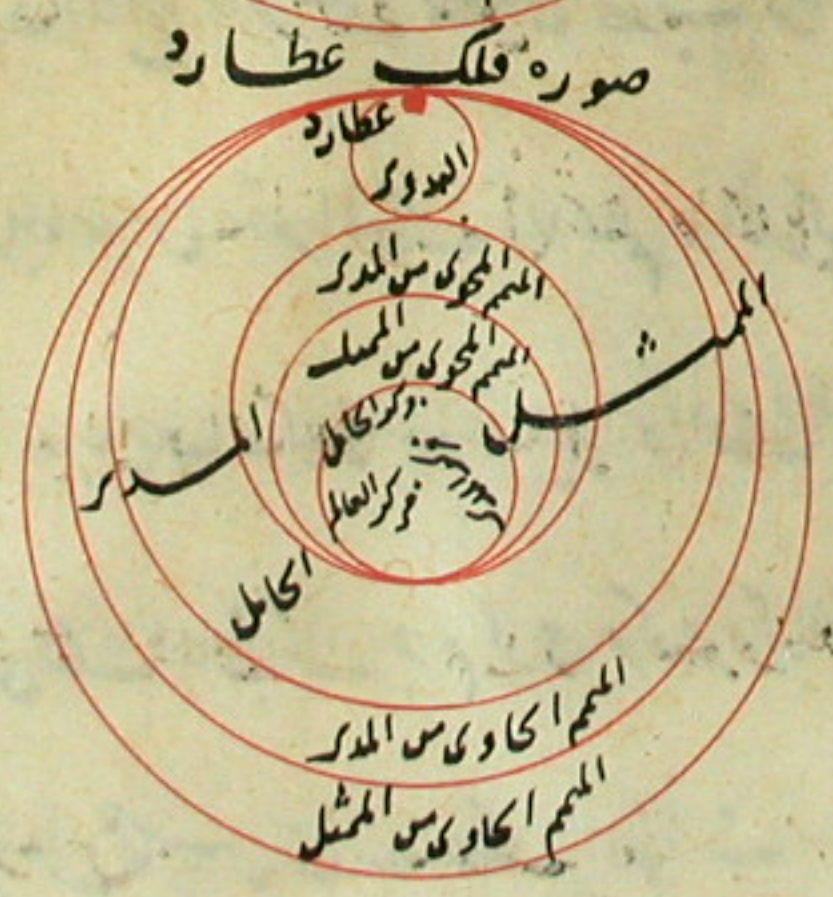 صورة فلك عطارد
عطارد
التدوير
المتمم المحوى من المدير
المتمم المحوى من الممثل
الممثل
مركز الحامل
المدير
مركز العالم
الحامل
المتمم الحاوى من المدير
المتمم الحاوى من الممثل